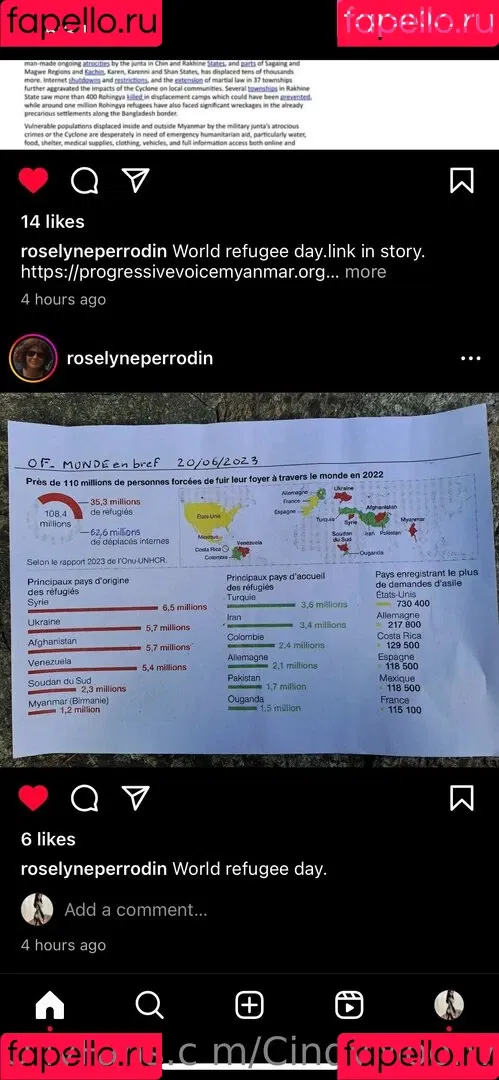 fapello.ru
fapello.ru
man-made ongoing atrocities by the junta in Chin and Rakhine States, and parts of Sagaing and
Magwe Regions and Kachin, Karen, Karenni and Shan States, has displaced tens of thousands
more. Internet shutdowns and restrictions, and the extension of martial law in 37 townships
further aggravated the impacts of the Cyclone on local communities. Several townships in Rakhine
State saw more than 400 Rohingya killed in displacement camps which could have been prevented,
while around one million Rohingya refugees have also faced significant wreckages in the already
precarious settlements along the Bangladesh border.
Vulnerable populations displaced inside and outside Myanmar by the military junta's atrocious
crimes or the Cyclone are desperately in need of emergency humanitarian aid, particularly water,
food, shelter, medical supplies, clothing, vehicles, and full information access both online and
14 likes
roselyneperrodin World refugee day.link in story.
https://progressivevoicemyanmar.org... more
4 hours ago
roselyneperrodin
OF- MUNDE en bref 20/06/2023
Près de 110 millions de personnes forcées de fuir leur foyer à travers le monde en 2022
108,4
millions
35,3 millions
de réfugiés
62,6 millions
de déplacés internes
Selon le rapport 2023 de l'Onu-UNHCR.
États-Unis
Mexique
Costa Rica
Colombie
Venezuela
Allemagne
France
Espagne
Ukraine
Turquie
Syrie
Afghanistan
Iran Pakistan
Myanmar
Soudan
du Sud
Ouganda
Principaux pays d'origine
des réfugiés
Syrie
6,5 millions
Ukraine
5,7 millions
Afghanistan
5,7 millions
Venezuela
5,4 millions
Soudan du Sud
2,3 millions
Myanmar (Birmanie)
1,2 million
Principaux pays d'accueil
des réfugiés
Turquie
3,6 millions
Iran
3,4 millions
Colombie
2,4 millions
Allemagne
2,1 millions
Pakistan
1,7 million
Ouganda
1,5 million
Pays enregistrant le plus
de demandes d'asile
États-Unis
730 400
Allemagne
217 800
Costa Rica
129 500
Espagne
118 500
Mexique
118 500
France
115 100
6 likes
roselyneperrodin World refugee day.
Add a comment...
4 hours ago
fapello.ru
fapello.ru